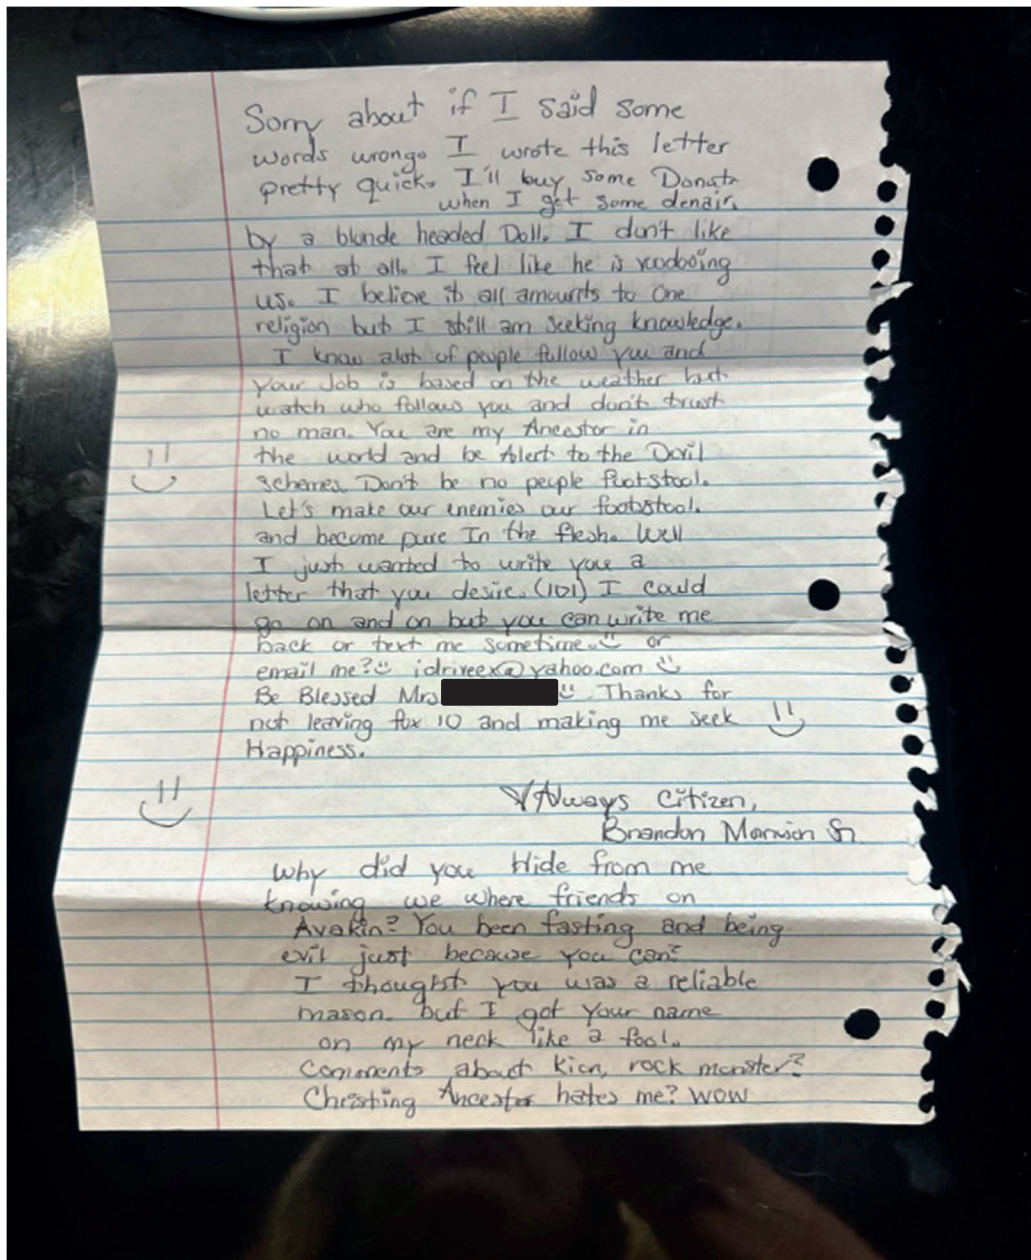 Sorry about if I said some
words wrong. I wrote this letter
pretty quick. I'll buy some Donats
when I get some denair.
by a blunde headed Doll. I don't like
that at all. I feel like he is voodooing
us. I believe it all amounts to One
religion but I still am seeking knowledge.
I know alot of people follow you and
your Job is based on the weather but
watch who follows you and don't trust
no man. You are my Ancestor in
the world and be Alert to the Devil
schemes. Don't be no people footstool.
Let's make our enemies our footstool.
and become pure In the flesh. Well
I just wanted to write you a
letter that you desire. (101) I could
go on and on but you can write me
back or text me sometime. or
email me? idriveex@yahoo.com
Be Blessed Mrs Thanks for
not leaving fox 10 and making me seek
Happiness.
Always Citizen,
Brandon
Why did you Hide from me
knowing we where friends on
Avakin? You been fasting and being
evil just because you can?
I thought you was a reliable
mason. but I got your name
on my neck like a fool.
Comments about rock monster?
Ancestor hates me? WOW